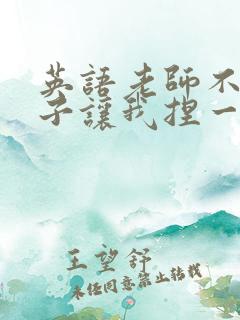 英語老師不
子讓我捏一
王望舒
未经同意禁止转载